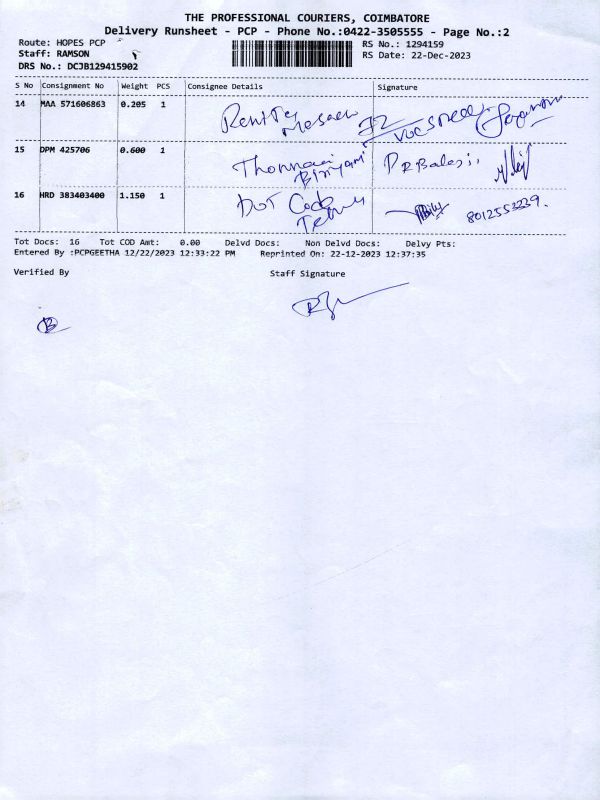 THE PROFESSIONAL COURIERS, COIMBATORE
Delivery Runsheet - PCP - Phone No.:0422-3505555 - Page No.:2
Route: HOPES PCP
Staff: RAMSON
DRS No.: DCJB129415902
RS No.: 1294159
RS Date: 22-Dec-2023
S No Consignment No Weight PCS Consignee Details Signature
14 MAA 571606863 0.205 1
15 DPM 425706 0.600 1 Biriyani DR Balaji
16 HRD 383403400 1.150 1 DOT Code 8012553239.
Tot Docs: 16 Tot COD Amt: 0.00 Delvd Docs: Non Delvd Docs: Delvy Pts:
Entered By :PCPGEETHA 12/22/2023 12:33:22 PM Reprinted On: 22-12-2023 12:37:35
Verified By Staff Signature